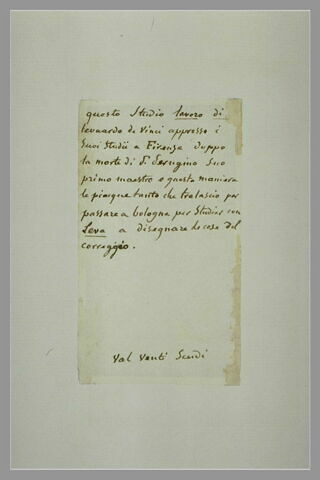 questo Studio lavoro di
leonardo da Vinci appresso i
Suoi Studii a Firenze doppo
la morte di P. Perugino Suo
primo maestro e questa maniera
le piacque tanto che tralascio per
passare a bologna per Studiar con
Seva a disegnare le cose del
correggio.
Val Venti Scudi